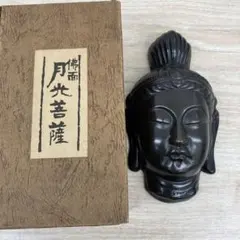 佛面
月光菩薩